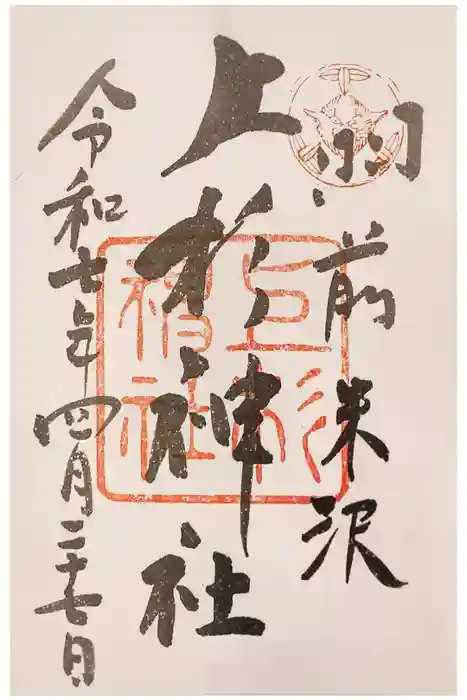 羽前米沢
上杉神社
上杉神社
令和七年四月二十七日